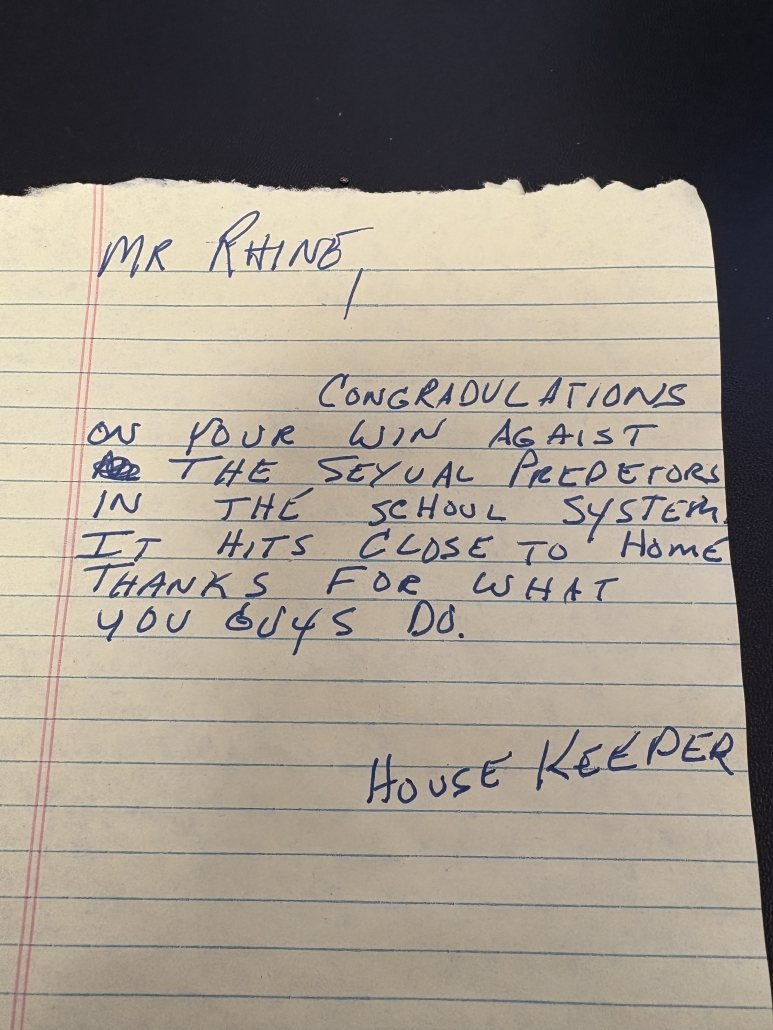 MR RHINE,
CONGRADULATIONS
ON YOUR WIN AGAIST
THE SEXUAL PREDETORS
IN THE SCHOOL SYSTEM.
IT HITS CLOSE TO HOME
THANKS FOR WHAT
YOU GUYS DO.
HOUSE KEEPER